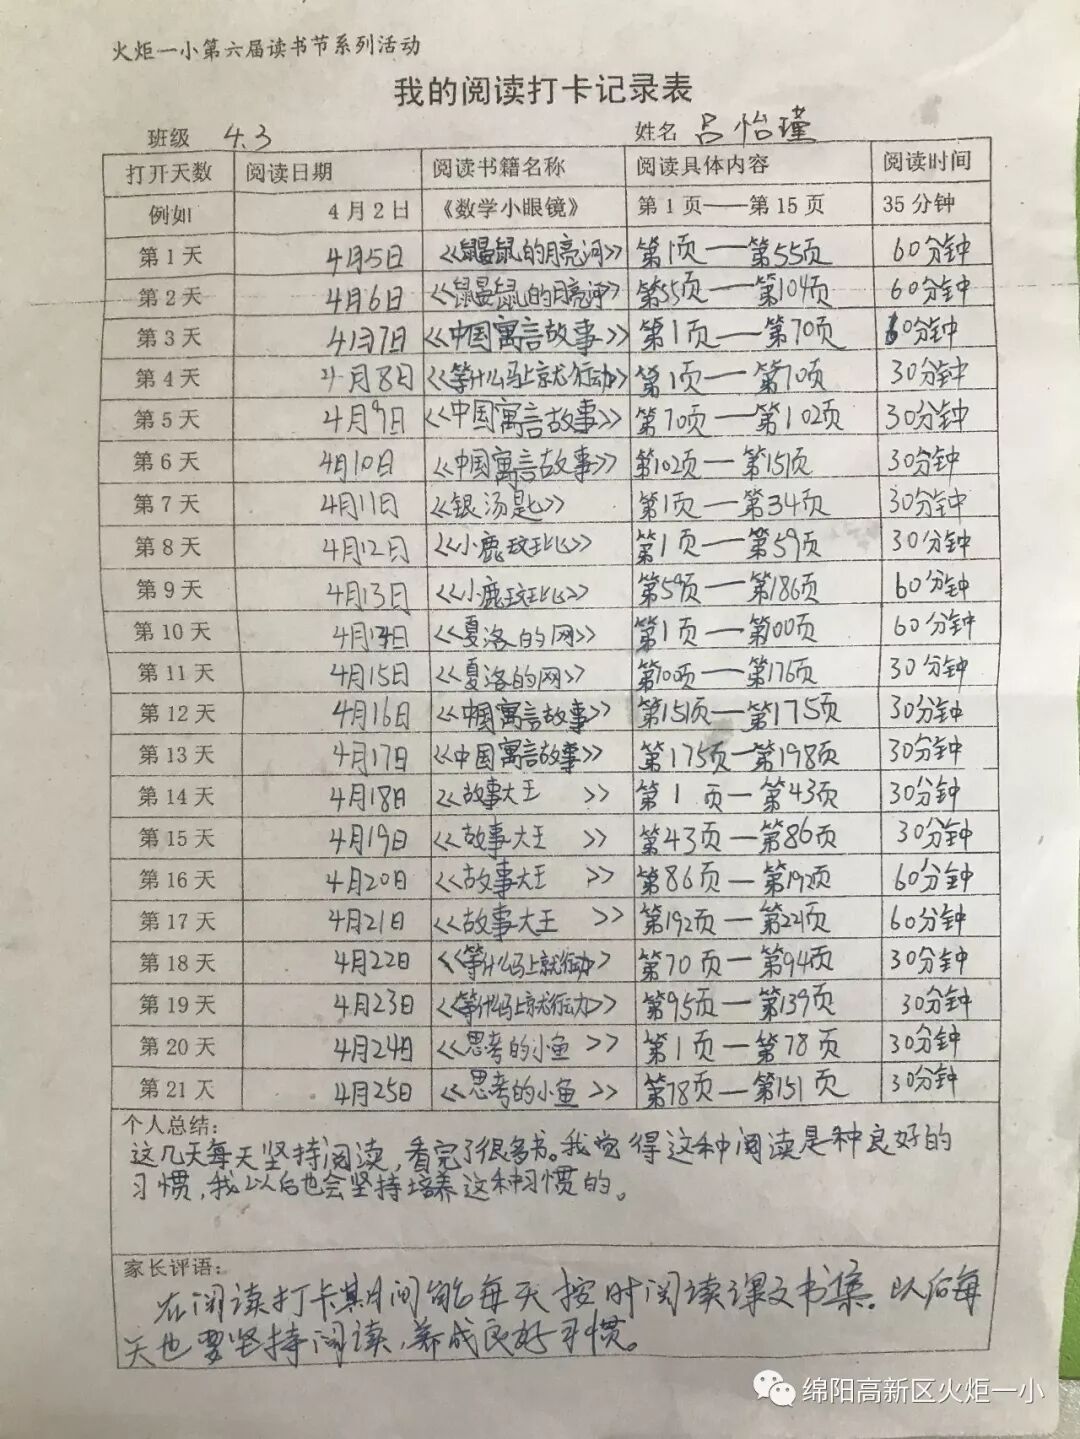 火炬一小第六届读书节系列活动
我的阅读打卡记录表
班级 4.3 姓名 吕怡瑾
打开天数 阅读日期 阅读书籍名称 阅读具体内容 阅读时间
例如 4月2日 《数学小眼镜》 第1页——第15页 35分钟
第1天 4月5日 《鼹鼠的月亮河》 第1页——第55页 60分钟
第2天 4月6日 《鼹鼠的月亮河》 第55页——第104页 60分钟
第3天 4月7日 《中国寓言故事》 第1页——第70页 60分钟
第4天 4月8日 《等什么马上就行动》 第1页——第70页 30分钟
第5天 4月9日 《中国寓言故事》 第70页——第102页 30分钟
第6天 4月10日 《中国寓言故事》 第102页—第151页 30分钟
第7天 4月11日 《银汤匙》 第1页——第34页 30分钟
第8天 4月12日 《小鹿斑比》 第1页——第59页 30分钟
第9天 4月13日 《小鹿斑比》 第59页——第186页 60分钟
第10天 4月14日 《夏洛的网》 第1页——第100页 60分钟
第11天 4月15日 《夏洛的网》 第100页——第176页 30分钟
第12天 4月16日 《中国寓言故事》 第151页—第175页 30分钟
第13天 4月17日 《中国寓言故事》 第175页—第198页 30分钟
第14天 4月18日 《故事大王》 第1页—第43页 30分钟
第15天 4月19日 《故事大王》 第43页—第86页 30分钟
第16天 4月20日 《故事大王》 第86页—第192页 60分钟
第17天 4月21日 《故事大王》 第192页—第221页 60分钟
第18天 4月22日 《等什么马上就行动》 第70页—第94页 30分钟
第19天 4月23日 《等什么马上就行动》 第95页—第139页 30分钟
第20天 4月24日 《思考的小鱼》 第1页—第78页 30分钟
第21天 4月25日 《思考的小鱼》 第78页—第151页 30分钟
个人总结：
这几天每天坚持阅读，看完了很多书。我觉得这种阅读是种良好的
习惯，我以后也会坚持培养这种习惯的。
家长评语：
在阅读打卡期间能每天按时阅读课文书集。以后每
天也要坚持阅读，养成良好习惯。
绵阳高新区火炬一小